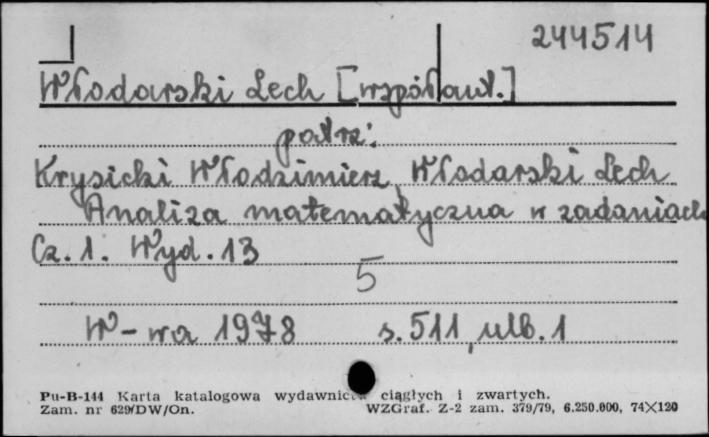 244514
Włodarski Lech [współaut.]
patrz:
Krysicki Włodzimierz, Włodarski Lech
Analiza matematyczna w zadaniach
Cz. 1. Wyd. 13
5
W-wa 1978 s. 511, nlb. 1
Pu-B-144 Karta katalogowa wydawnictw ciągłych i zwartych.
Zam. nr 629/DW/On. WZGraf. Z-2 zam. 379/79, 6.250.000, 74×120